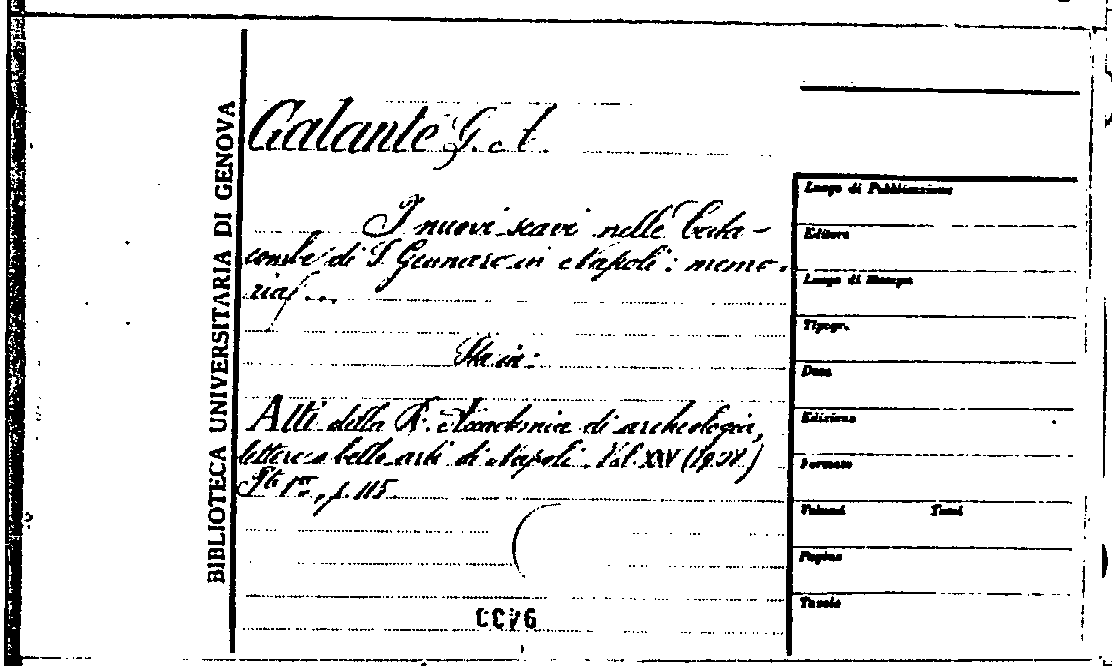 BIBLIOTECA UNIVERSITARIA DI GENOVA
Galante G. A.
I nuovi scavi nelle Cata-
combe di S. Gennaro in Napoli: memo-
ria ...
Sta in:
Atti della R. Accademia di archeologia,
lettere e belle arti di Napoli. Vol. XXV (1908)
Pte 1ª, p. 115.
Luogo di Pubblicazione
Editore
Luogo di Stampa
Tipogr.
Data
Edizione
Formato
Volumi Tomi
Pagine
Tavole